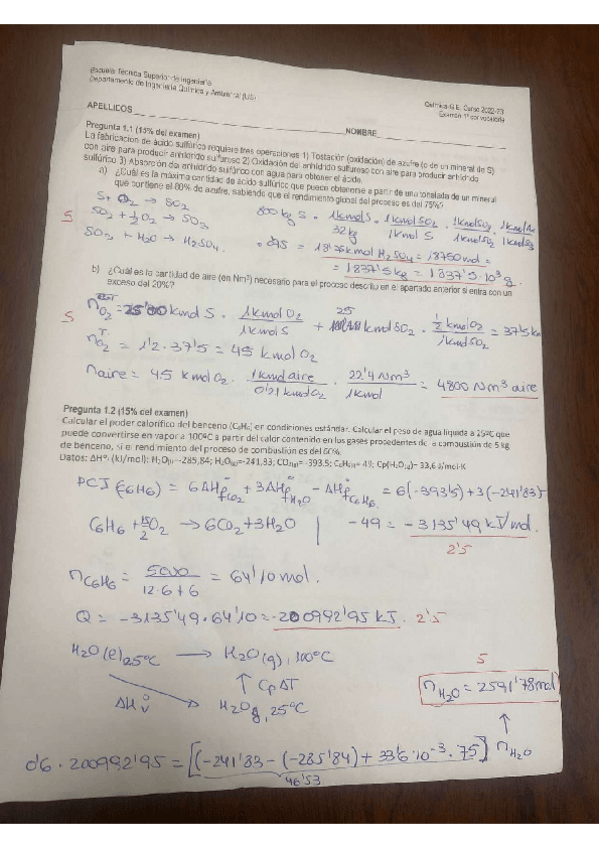 Escuela Técnica Superior de Ingeniería
Departamento de Ingeniería Química y Ambiental (US)
Química G.E. Curso 2022-23
Examen 1ª convocatoria
APELLIDOS
NOMBRE
Pregunta 1.1 (15% del examen)
La fabricación de ácido sulfúrico requiere tres operaciones 1) Tostación (oxidación) de azufre (o de un mineral de S)
con aire para producir anhídrido sulfuroso 2) Oxidación del anhídrido sulfuroso con aire para producir anhídrido
sulfúrico 3) Absorción del anhídrido sulfúrico con agua para obtener el ácido.
a) ¿Cuál es la máxima cantidad de ácido sulfúrico que puede obtenerse a partir de una tonelada de un mineral
que contiene el 80% de azufre, sabiendo que el rendimiento global del proceso es del 75%?
S + O2 → SO2
SO2 + ½O2 → SO3
SO3 + H2O → H2SO4
5
800 kg S · 1kmol S / 32 kg · 1kmol SO2 / 1kmol S · 1kmol SO3 / 1kmol SO2 · / 1kmol SO3
· 0'75 = 18'75 kmol H2SO4 = 18750 mol =
= 1837'5 kg = 1837'5·10³ g.
b) ¿Cuál es la cantidad de aire (en Nm³) necesario para el proceso descrito en el apartado anterior si entra con un
exceso del 20%?
5
nO2 = 25 kmol S · 1kmol O2 / 1kmol S + 25 kmol SO2 · ½ kmol O2 / 1kmol SO2 = 37'5
nO2 = 1'2 · 37'5 = 45 kmol O2
naire = 45 kmol O2 · 1kmol aire / 0'21 kmol O2 · 22'4 Nm³ / 1kmol = 4800 Nm³ aire
Pregunta 1.2 (15% del examen)
Calcular el poder calorífico del benceno (C6H6) en condiciones estándar. Calcular el peso de agua líquida a 25ºC que
puede convertirse en vapor a 100ºC a partir del calor contenido en los gases procedentes de la combustión de 5 kg
de benceno, si el rendimiento del proceso de combustión es del 60%.
Datos: ΔHºf (kJ/mol): H2O(l)=-285,84; H2O(g)=-241,83; CO2(g)=-393,5; C6H6(l)= 49; Cp(H2O,g)= 33,6 J/mol·K
PCI (C6H6) = 6ΔHºf CO2 + 3ΔHºf H2O - ΔHºf C6H6 = 6(-393'5) + 3(-241'83)-
C6H6 + 15/2 O2 → 6CO2 + 3H2O | -49 = -3135'49 kJ/mol.
2'5
nC6H6 = 5000 / 12·6+6 = 64'10 mol.
Q = -3135'49 · 64'10 = -200992'95 kJ. 2'5
H2O(l) 25ºC → H2O(g), 100ºC
↑ CpΔT
ΔHºv ↘ H2O g, 25ºC
5
nH2O = 2591'78 mol
↑
0'6 · 200992'95 = [(-241'83 - (-285'84) + 33'6·10⁻³ · 75] nH2O
46'53